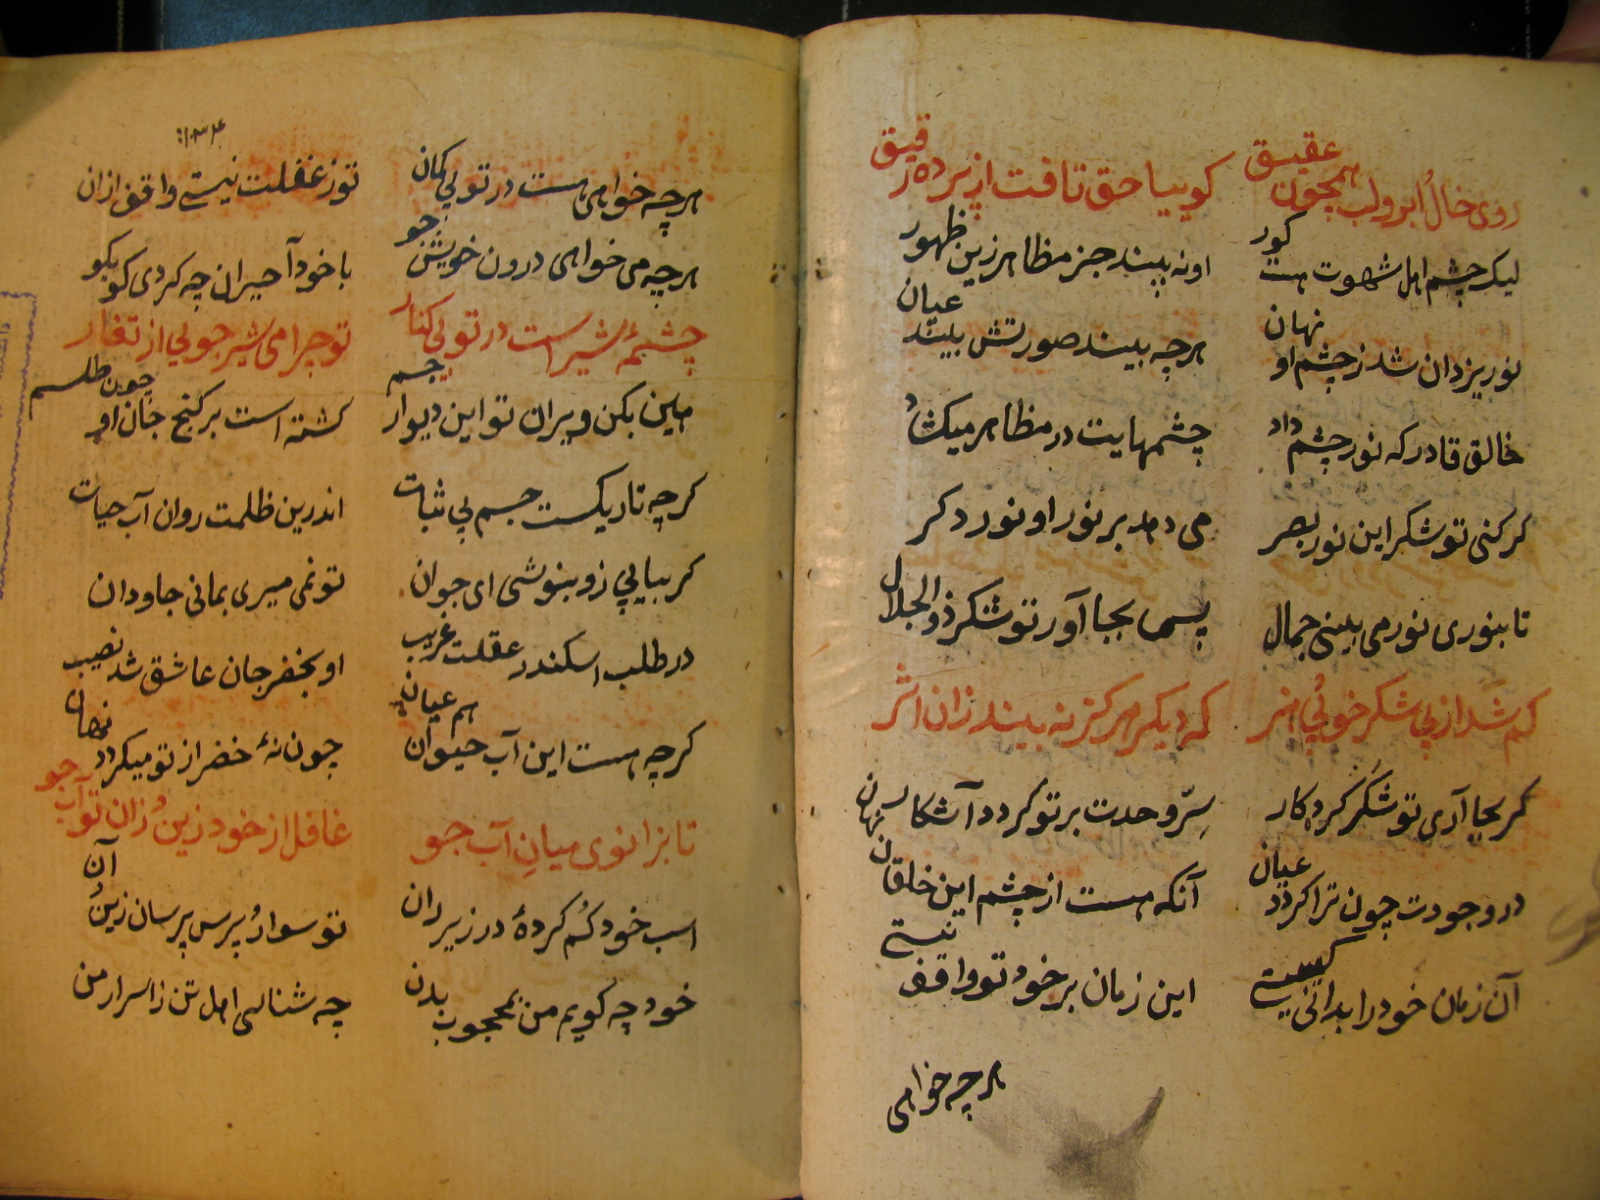 روی خال ابرو لب همچون عقیق کوییا حق تافت از پرده رقیق
لیک چشم اهل شهوت هست کور او نه بیند جز مظاهر زین ظهور
نور یزدان شد ز چشم او نهان هرچه بیند صورتش بیند عیان
خالق قادر که نور چشم داد چشمهایت در مظاهر میکشاد
کر کنی تو شکر این نور بصر می دهد بر نور او نور دکر
تا بنوری نور می بینی جمال پس بجا آور تو شکر ذوالجلال
کم شد از بی شکر خوبی هنر که دیکر هرکز نه بیند زان اثر
کر بجا آری تو شکر کرده کار سرّ وحدت بر تو کردد آشکار
در وجودت چون ترا کردد عیان آنکه هست از چشم این خلقان نهان
آن زمان خود را بدانی کیستی این زمان بر خود تو واقف نیستی
هرچه خواهی
۱۰۳۴
هرچه خواهی هست در تو بی کمان تو ز غفلت نیستی واقف ازان
هرچه می خواهی درون خویش جو با خود آ حیران چه کردی کو بکو
چشمهٔ شیر است در تو بی کنار تو چرا می شیر جویی از تغار
هین بکن ویران تو این دیوار جسم کشته است بر کنج جان او چون طلسم
کرچه تاریکست جسم بی ثبات اندرین ظلمت روان آب حیات
کر بیابی زو بنوشی ای جوان تو نمی میری بمانی جاودان
در طلب اسکندر عقلت غریب او بخضر جان عاشق شد نصیب
کرچه هست این آب حیوان هم عیان چون نهٔ خضر از تو میکردد نهان
تا بزانوی میان آب جو غافل از خود زین و زان تو آب جو
اسب خود کم کردهٔ در زیر ران تو سواره پرس پرسان زین و آن
خود چه کویم من بمحجوب بدن چه شناسی اهل تن ز اسرار من